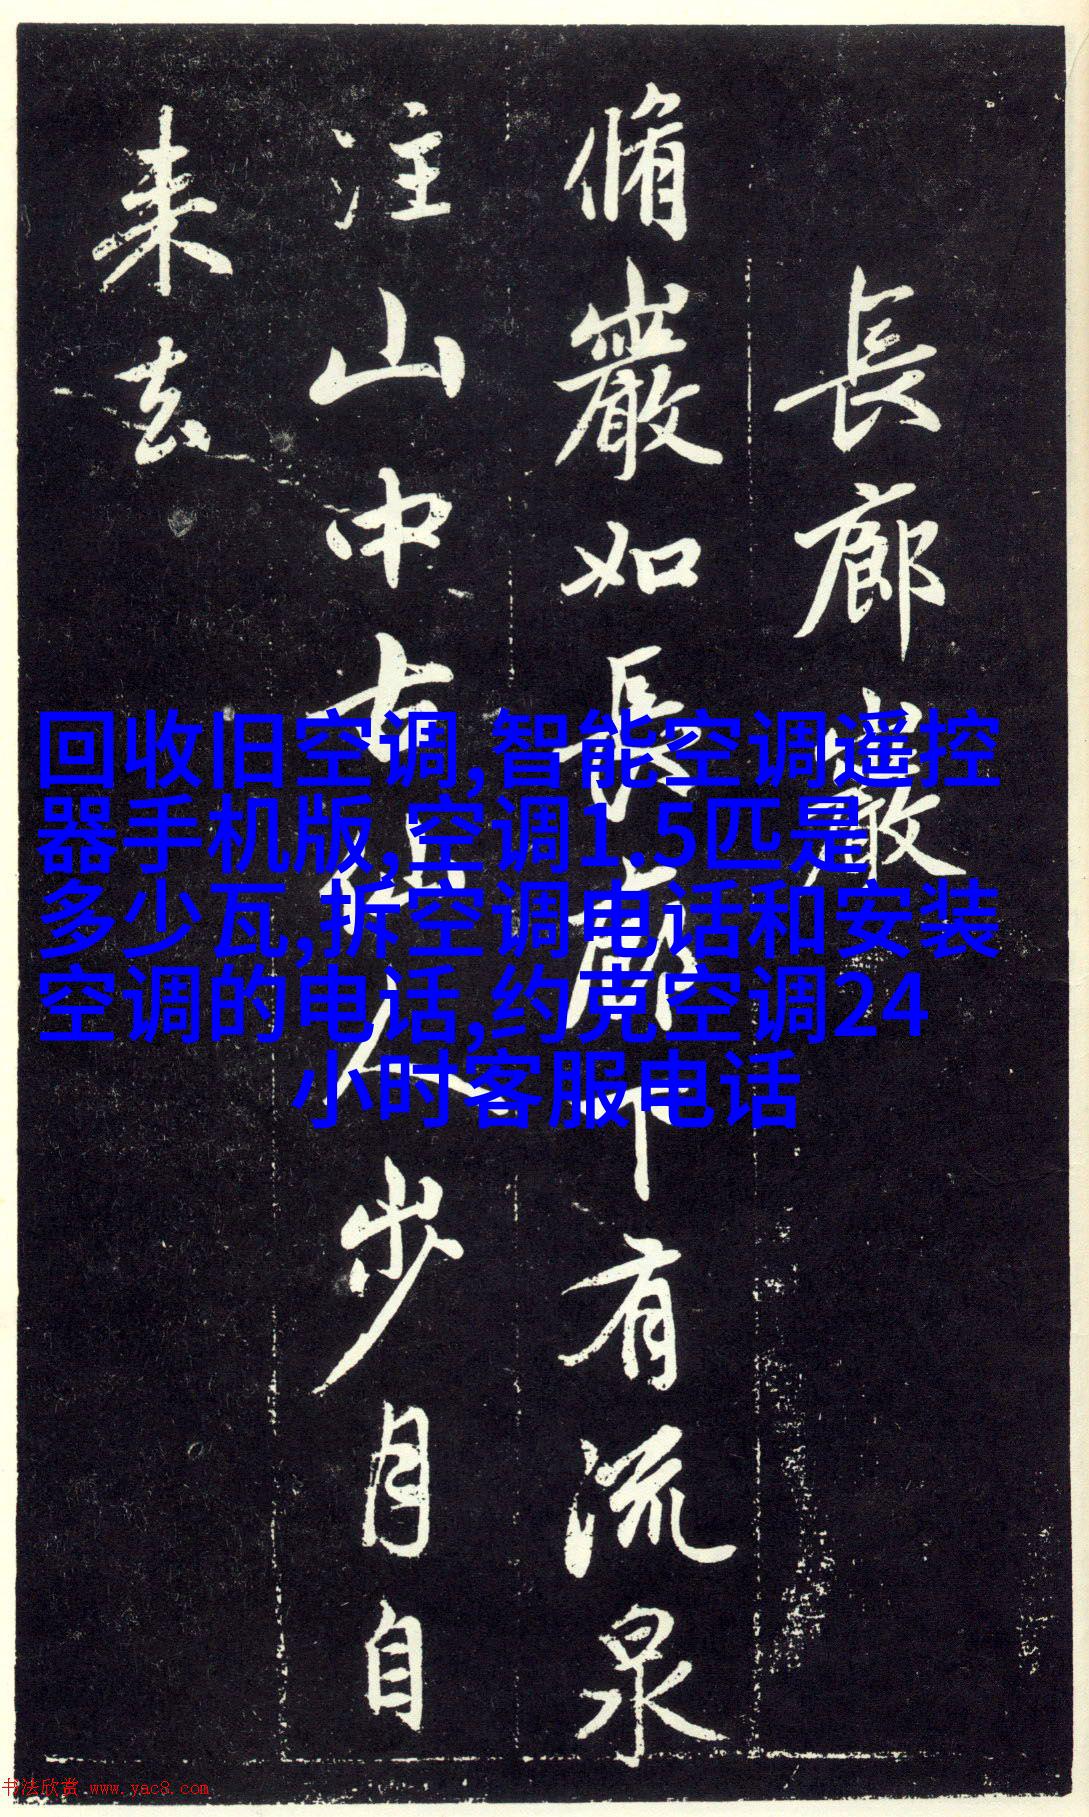 長廊巖
脩巖如長廊下有流泉
注山中古仙人步月自
来去
回收旧空调,智能空调遥控
器手机版,空调1.5匹是
多少瓦,拆空调电话和安装
空调的电话,约克空调24
小时客服电话
书法欣赏 www.yac8.com